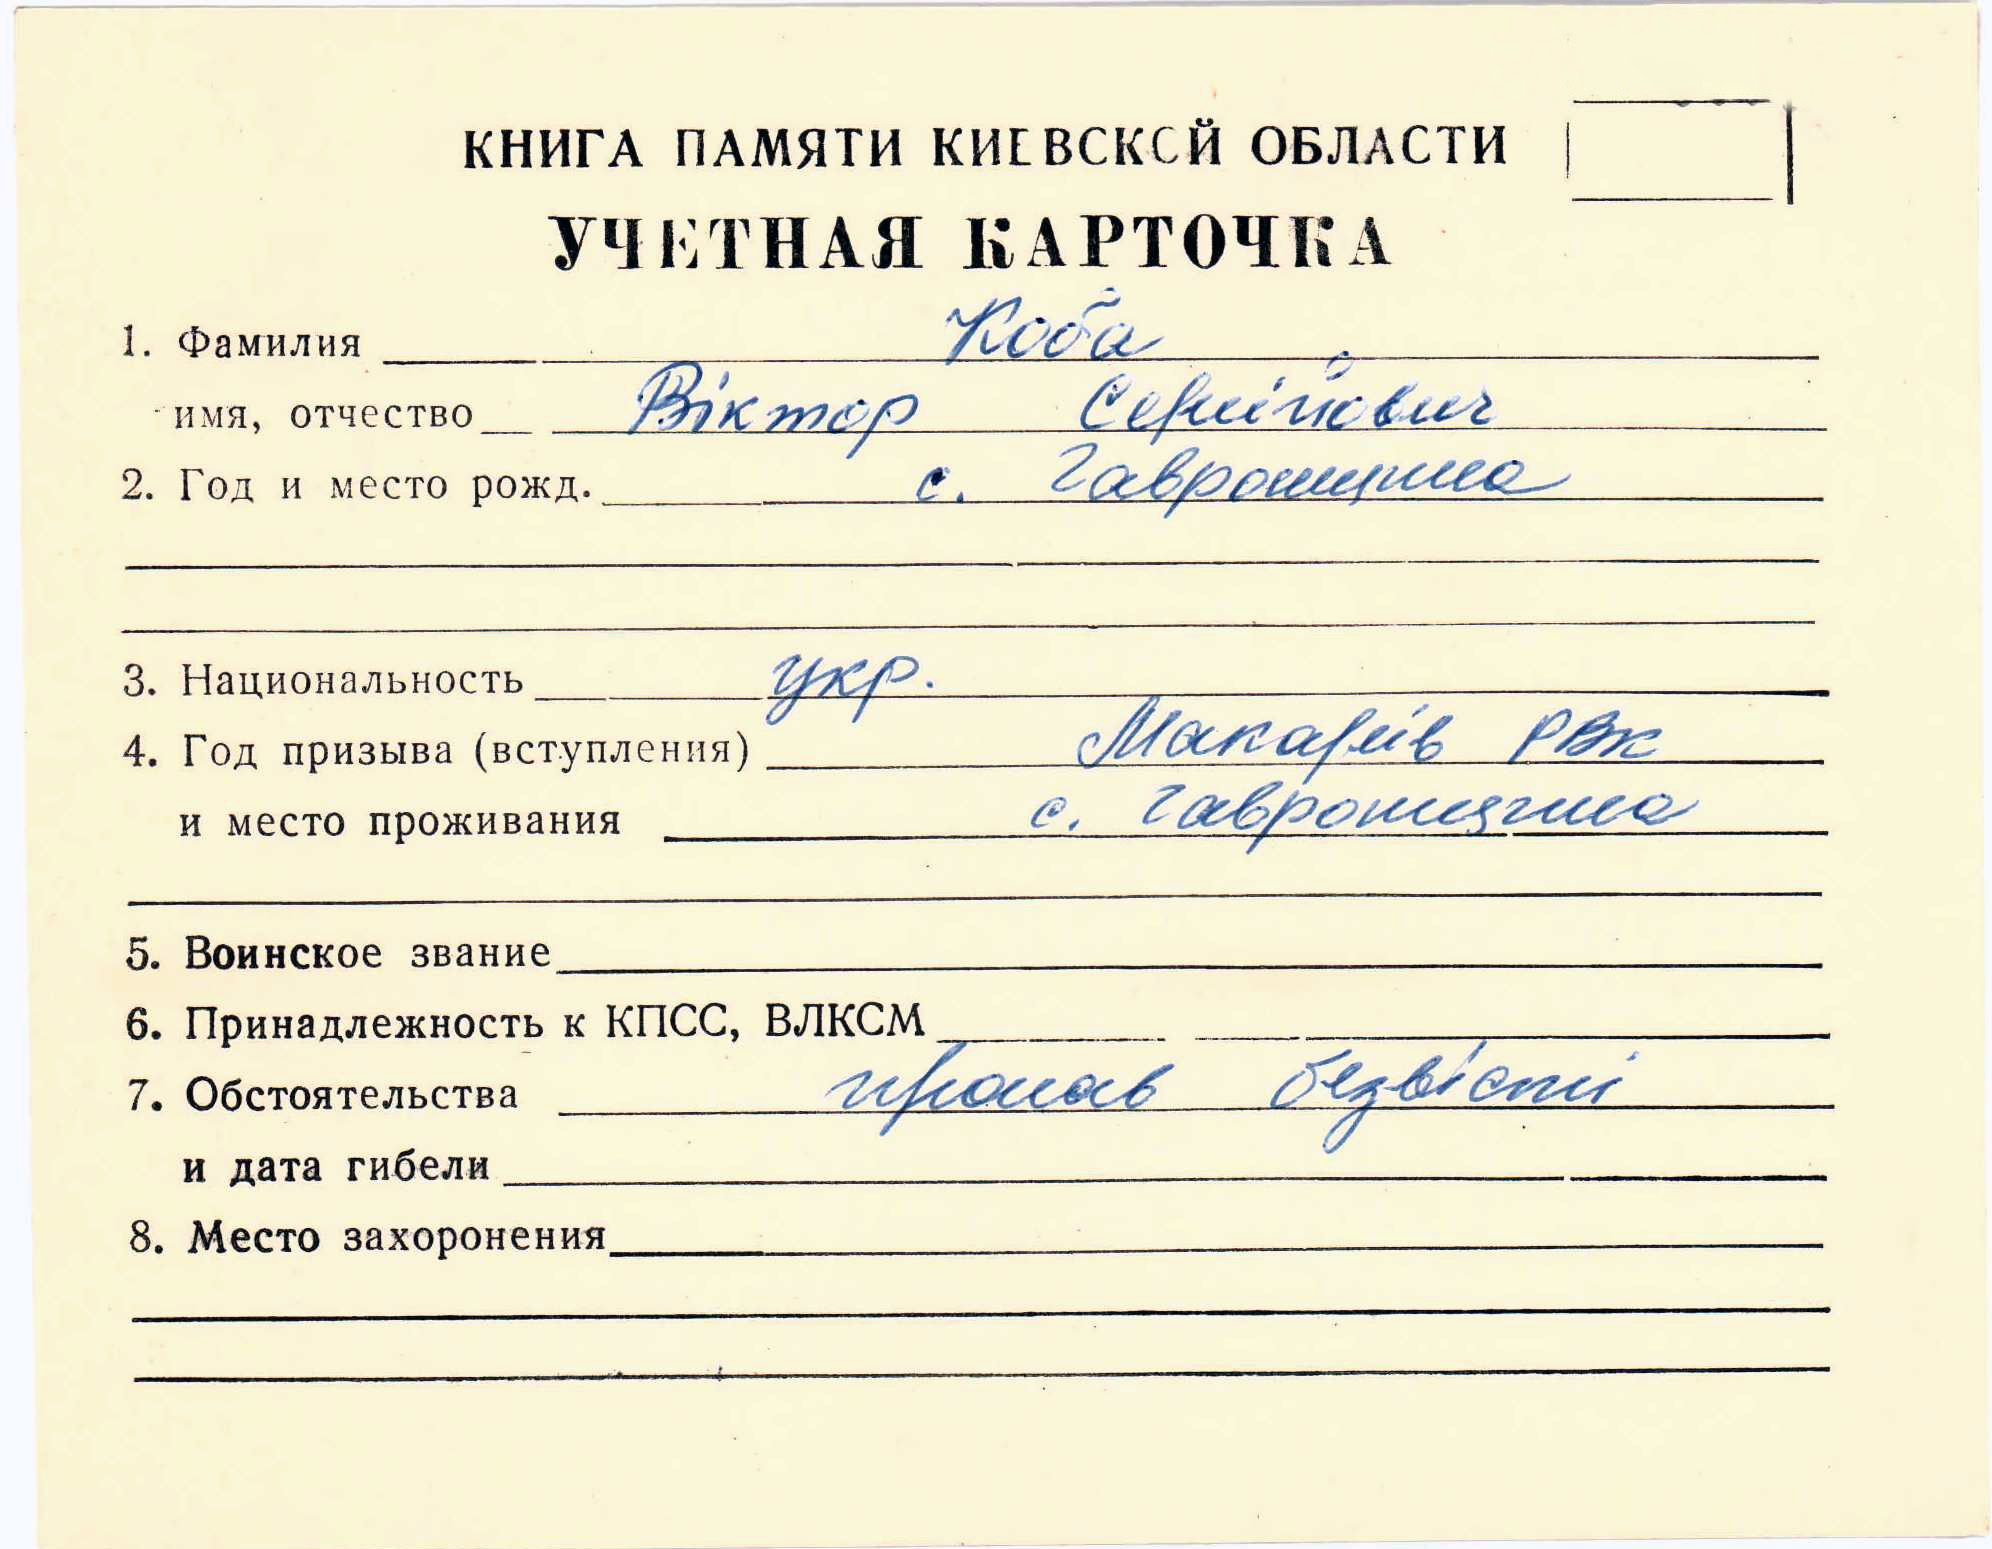 КНИГА ПАМЯТИ КИЕВСКОЙ ОБЛАСТИ
УЧЕТНАЯ КАРТОЧКА
1. Фамилия Коба
имя, отчество Віктор Сергійович
2. Год и место рожд. с. Гавронщина
3. Национальность укр.
4. Год призыва (вступления) Макарів РВК
и место проживания с. Гавронщина
5. Воинское звание
6. Принадлежность к КПСС, ВЛКСМ
7. Обстоятельства пропав безвісті
и дата гибели
8. Место захоронения